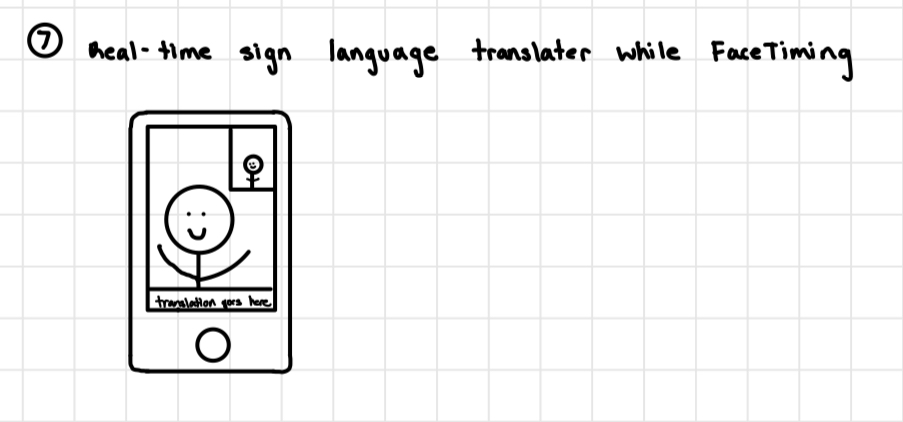 ⑦ Real-time sign language translater while FaceTiming
translation goes here